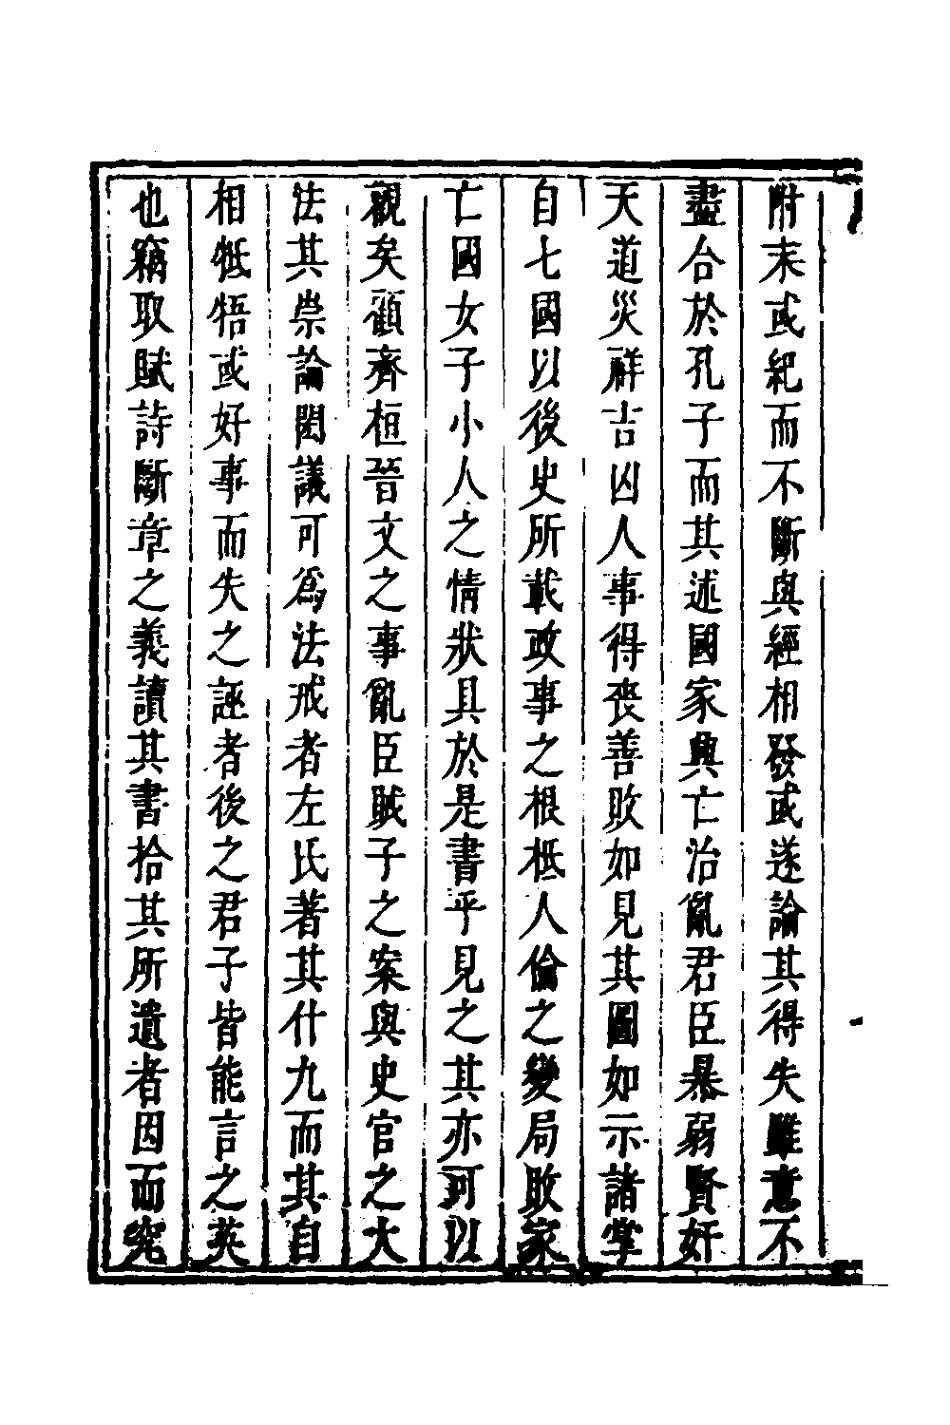 附末或紀而不斷與經相發或遂論其得失雖意不
盡合於孔子而其述國家興亡治亂君臣暴弱賢奸
天道災祥吉凶人事得喪善敗如見其圖如示諸掌
自七國以後史所載政事之根柢人倫之變局敗家
亡國女子小人之情狀具於是書乎見之其亦可以
觀矣顧齊桓晉文之事亂臣賊子之案與史官之大
法其崇論閎議可爲法戒者左氏著其什九而其自
相牴牾或好事而失之誣者後之君子皆能言之英
也竊取賦詩斷章之義讀其書拾其所遺者因而究